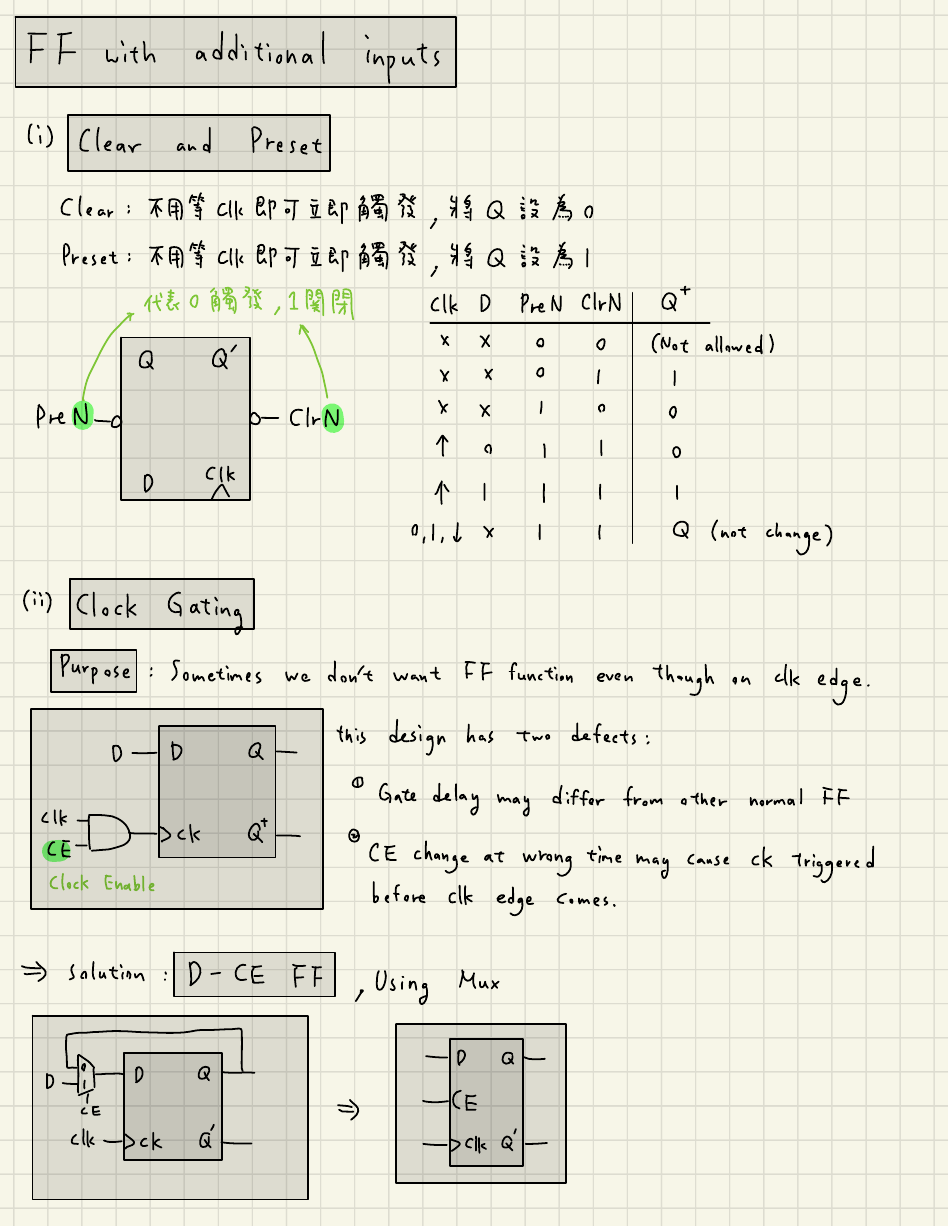 FF with additional inputs
(i) Clear and Preset
Clear : 不用等 clk 即可立即觸發 , 將 Q 設為 0
Preset : 不用等 clk 即可立即觸發 , 將 Q 設為 1
代表 0 觸發 , 1 關閉
Q Q'
PreN ClrN
D Clk
Clk D PreN ClrN Q⁺
x x 0 0 (Not allowed)
x x 0 1 1
x x 1 0 0
↑ 0 1 1 0
↑ 1 1 1 1
0,1,↓ x 1 1 Q (not change)
(ii) Clock Gating
Purpose : Sometimes we don't want FF function even though on clk edge.
D D Q
clk
CE ck Q⁺
Clock Enable
this design has two defects :
① Gate delay may differ from other normal FF
② CE change at wrong time may cause ck triggered
before clk edge comes.
⇒ solution : D-CE FF , Using Mux
D 0 1 D Q
CE
clk ck Q'
⇒
D Q
CE
clk Q'